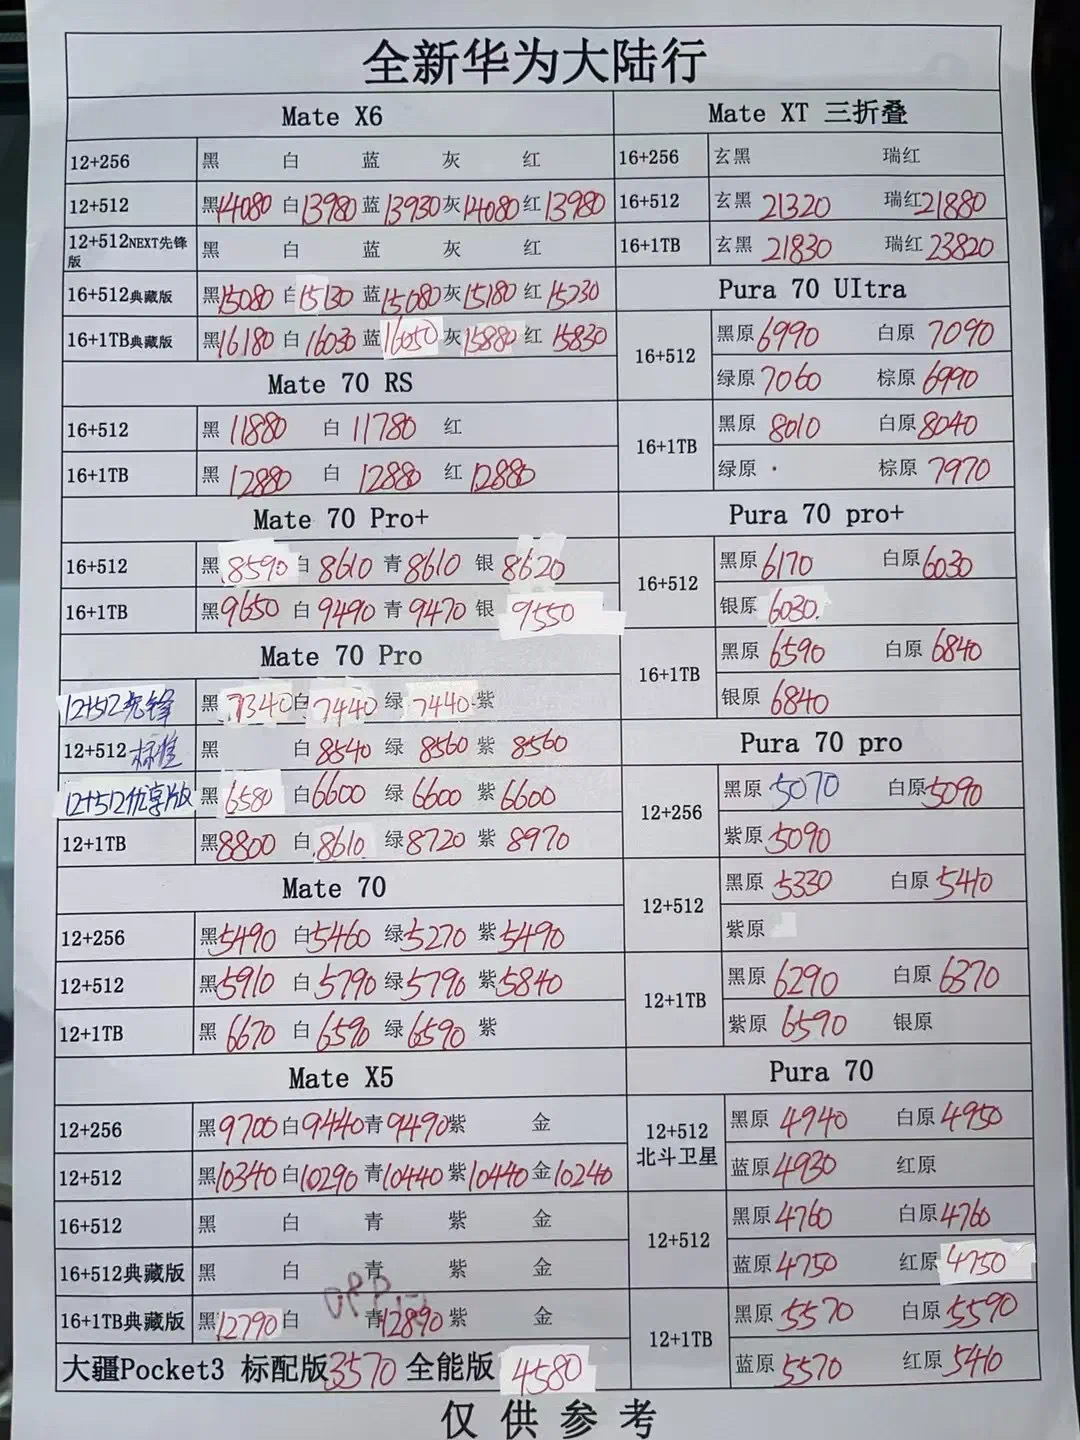 全新华为大陆行
Mate X6
12+256 黑 白 蓝 灰 红
12+512 黑14080 白13980 蓝13930 灰14080 红13980
12+512NEXT先锋版 黑 白 蓝 灰 红
16+512典藏版 黑15080 白15130 蓝15080 灰15180 红15230
16+1TB典藏版 黑16180 白16030 蓝16050 灰15880 红15830
Mate 70 RS
16+512 黑11880 白11780 红
16+1TB 黑12880 白12880 红12880
Mate 70 Pro+
16+512 黑8590 白8610 青8610 银8620
16+1TB 黑9650 白9490 青9470 银9550
Mate 70 Pro
12+512先锋 黑7340 白7440 绿7440 紫
12+512标准 黑 白8540 绿8560 紫8560
12+512优享版 黑6580 白6600 绿6600 紫6600
12+1TB 黑8800 白8610 绿8720 紫8970
Mate 70
12+256 黑5490 白5460 绿5270 紫5490
12+512 黑5910 白5790 绿5790 紫5840
12+1TB 黑6670 白6590 绿6590 紫
Mate X5
12+256 黑9700 白9440 青9490 紫 金
12+512 黑10340 白10290 青10440 紫10440 金10240
16+512 黑 白 青 紫 金
16+512典藏版 黑 白 青 紫 金
16+1TB典藏版 黑12790 白 青12890 紫 金
大疆Pocket3 标配版3570 全能版4580
Mate XT 三折叠
16+256 玄黑 瑞红
16+512 玄黑21320 瑞红21880
16+1TB 玄黑21830 瑞红23820
Pura 70 UItra
16+512 黑原6990 白原7090
绿原7060 棕原6990
16+1TB 黑原8010 白原8040
绿原 棕原7970
Pura 70 pro+
16+512 黑原6170 白原6030
银原6030
16+1TB 黑原6590 白原6840
银原6840
Pura 70 pro
12+256 黑原5070 白原5090
紫原5090
12+512 黑原5330 白原5410
紫原
12+1TB 黑原6290 白原6370
紫原6590 银原
Pura 70
12+512北斗卫星 黑原4940 白原4950
蓝原4930 红原
12+512 黑原4760 白原4760
蓝原4750 红原4750
12+1TB 黑原5570 白原5590
蓝原5570 红原5410
仅供参考